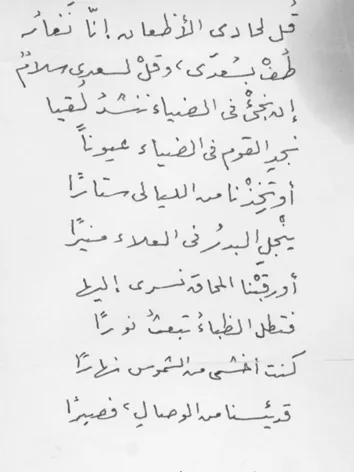 قُل لحادى الأظعان إنّا نَغار
طُفْ بسُعدَى، وقلْ لسعدى سلامٌ
إن نجئْ فى الضياء ننشدُ لُقيا
نجدِ القوم فى الضياء عيوناً
أو تخِذْنا من الليالى ستارًا
ينْجلِ البدرُ فى العلاء منيرًا
أو رقبْنا المحاق نسرى إليها
فتطل الظباءُ تبعثُ نورًا
كنت أخشى من الشموس نهارًا
قد يئسنا من الوصالِ، فصبرًا